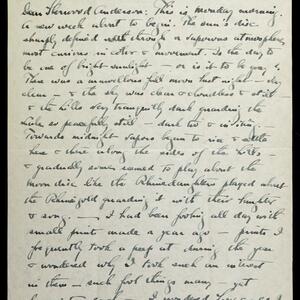 Dear Sherwood Anderson: This is Monday morning.
a new week about to begin. The sun's disc
sharply defined through a vaporous atmosphere
most curious in color & movement. Is the day to
be one of bright sunlight — or is it to be grey?
There was a marvellous full moon last night —
clear — & the sky was clear & cloudless & still
& the hills lay tranquilly dark guarding the
Lake so peacefully still — dark too —
Towards midnight vapors began to rise
here & there along the sides of the hills —
& gradually some seemed to play about the
moon disc like the Rhinedaughters played about
the Rhinegold guarding it with their laughter
& song. — I had been fooling all day with
small prints made a year ago — prints I
frequently took a peep at during the year
& wondered why I took such an interest
in them — such fool things many — yet